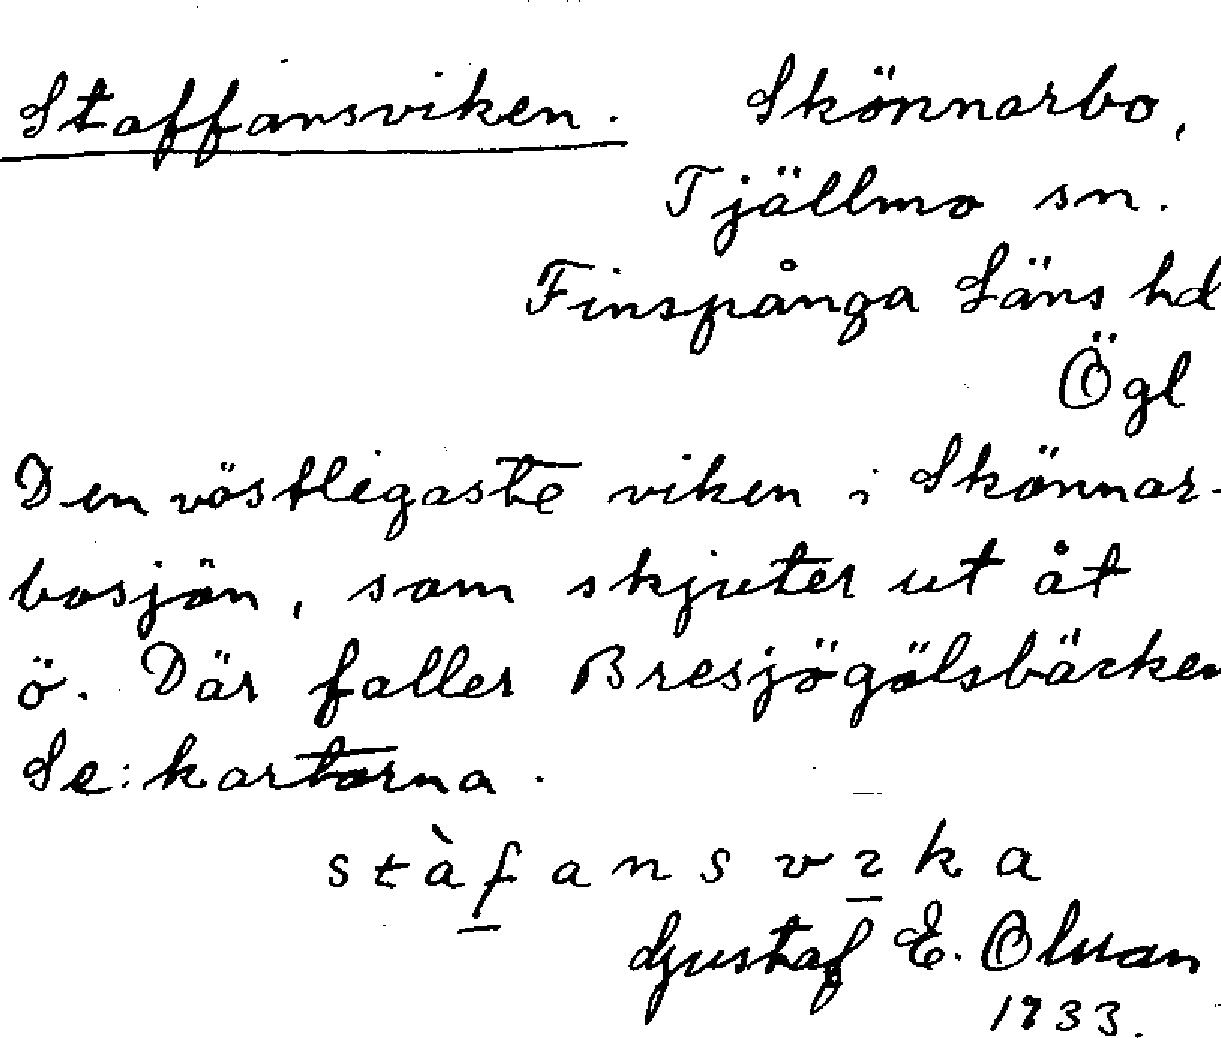 Staffansviken. Skönnarbo,
Tjällmo sn.
Finspånga Läns hd
Ögl
Den västligaste viken i Skönnar-
bosjön, som skjuter ut åt
ö. Där faller Bresjögölsbäcken
Se: kartorna.
stàfansvika
Gustaf E. Olsson
1933.